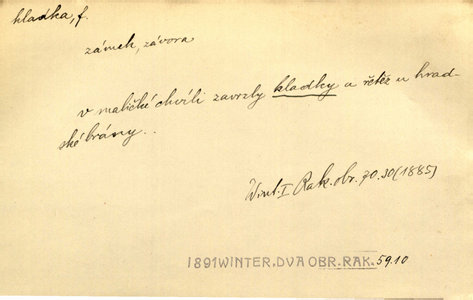 kladka, f.
zámek, závora
v maličké chvíli zavrzly kladky a řetěz u hrad-
ské brány..
Wint. I Rak. obr. 70.30 (1885)
1891 WINTER. DVA OBR. RAK. 59.10